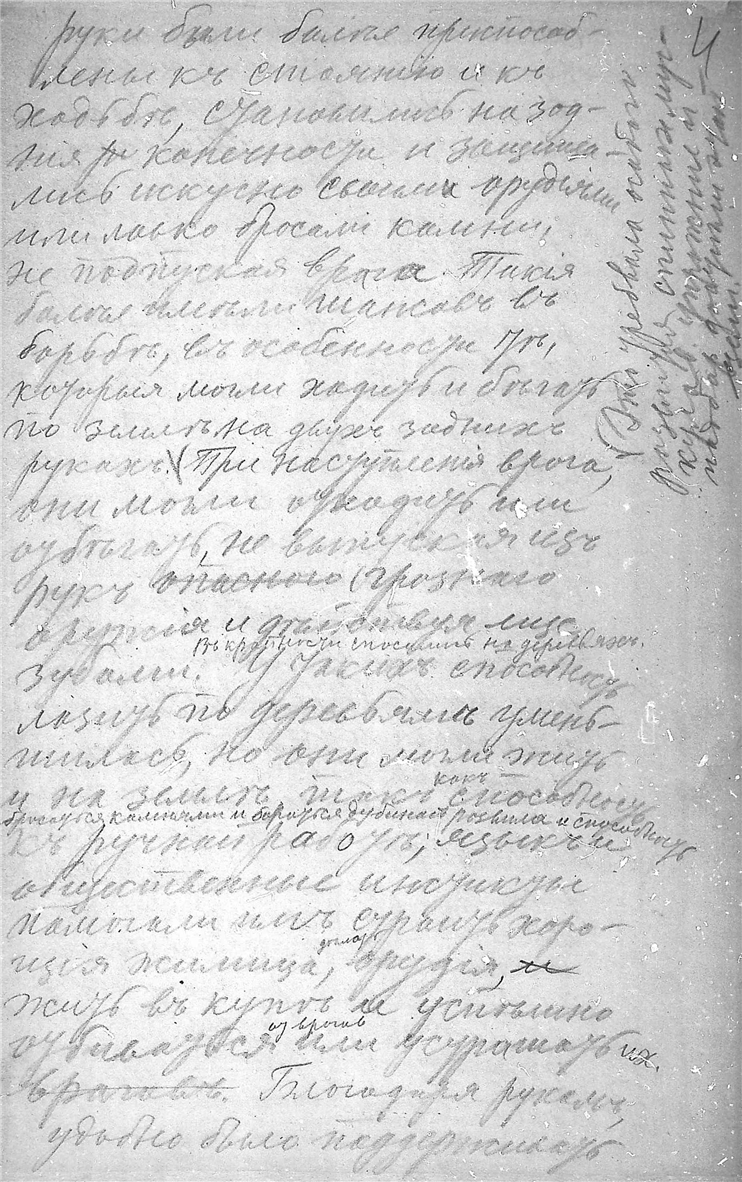 4
руки были более приспособ-
лены къ стоянію и къ
ходьбѣ, становились на зад-
нія конечности и защища-
лись искусно своими орудіями
или ловко бросали камни,
не подпуская врага. Такія
болѣе имѣли шансовъ въ
борьбѣ, въ особенности тѣ,
которыя могли ходить и бѣгать
по землѣ на двухъ заднихъ
рукахъ. V При наступленіи врага,
они могли уходить или
отбѣгать, не выпуская изъ
рукъ опаснаго (грознаго
оружія и дѣйствуя еще
Въ крайности спасались на деревьяхъ.
зубами. У такихъ способность
лазить по деревьямъ умень-
шилась, но они могли жить
и на землѣ, такъ какъ способность
бросаться камнями и бороться дубинами развила и способность
къ ручной работѣ; языкъ и
общественные инстикты
помогали имъ строить хоро-
шія жилища, делать орудія, и
жить въ купѣ и успѣшно
отбиваться от врагов или устрашать их.
враговъ. Благодаря рукамъ,
удобно было поддерживать
V Это требовало особаго
развитія спинныхъ мус-
куловъ